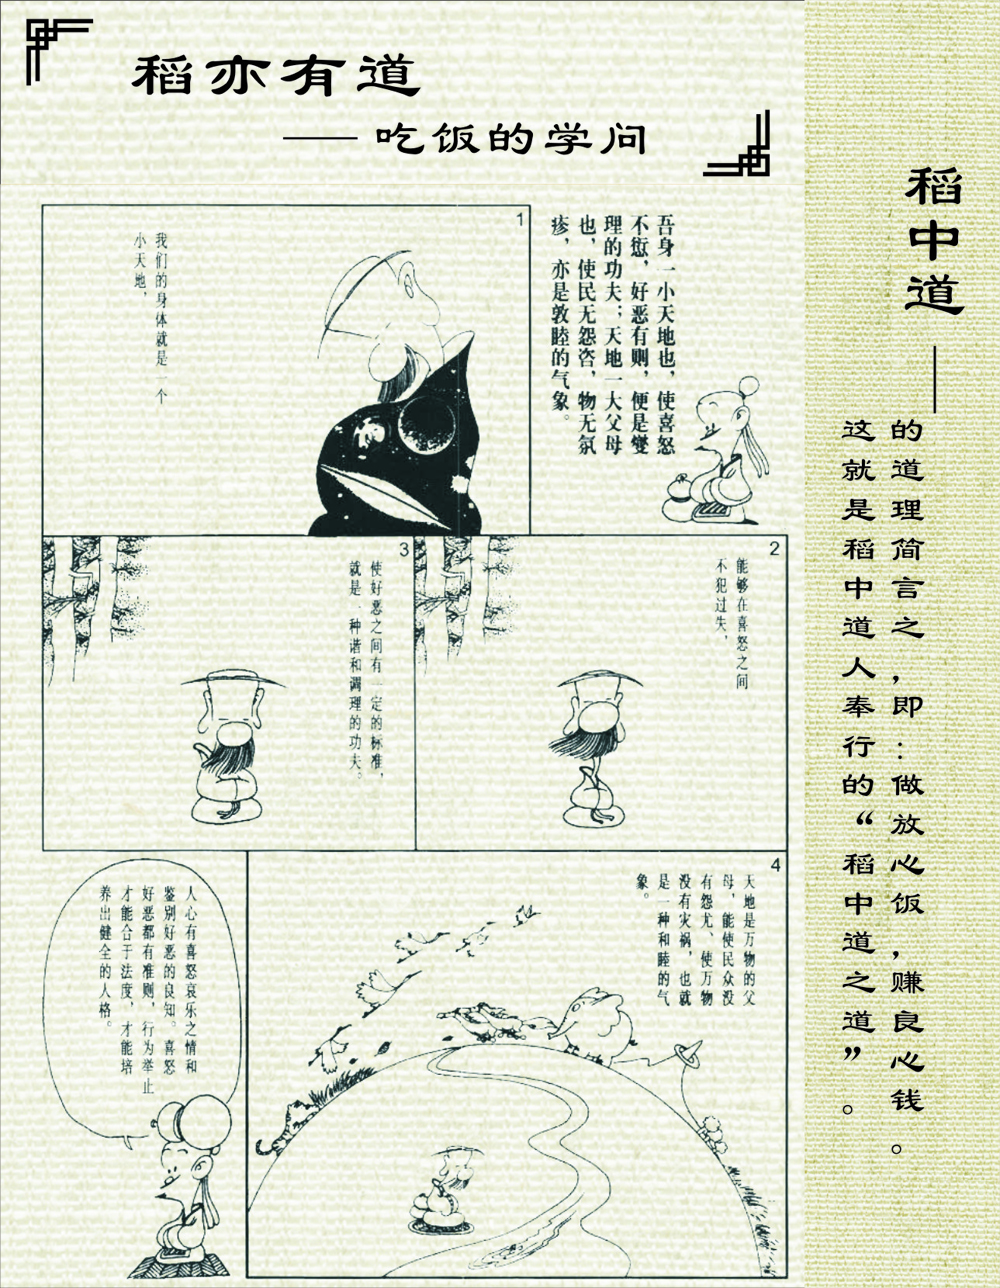 稻亦有道
——吃饭的学问
1
吾身一小天地也，使喜怒
不愆，好恶有则，便是燮
理的功夫；天地一大父母
也，使民无怨咨，物无氛
疹，亦是敦睦的气象。
我们的身体就是一个
小天地，
2
能够在喜怒之间
不犯过失，
3
使好恶之间有一定的标准，
就是一种谐和调理的功夫。
4
天地是万物的父
母，能使民众没
有怨尤、使万物
没有灾祸，也就
是一种和睦的气
象。
人心有喜怒哀乐之情和
鉴别好恶的良知。喜怒
好恶都有准则，行为举止
才能合于法度，才能培
养出健全的人格。
稻中道——
的道理简言之，即：做放心饭，赚良心钱。
这就是稻中道人奉行的“稻中道之道”。